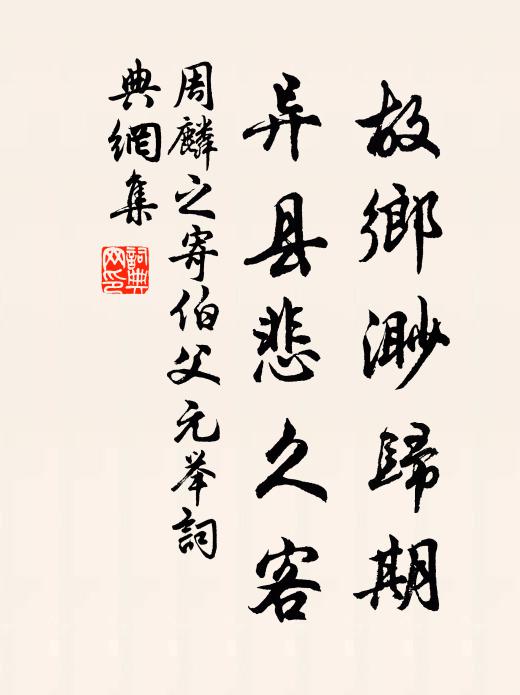 故鄉渺歸期
异县悲久客
周麟之寄伯父元举詞
典網集
詞典网印